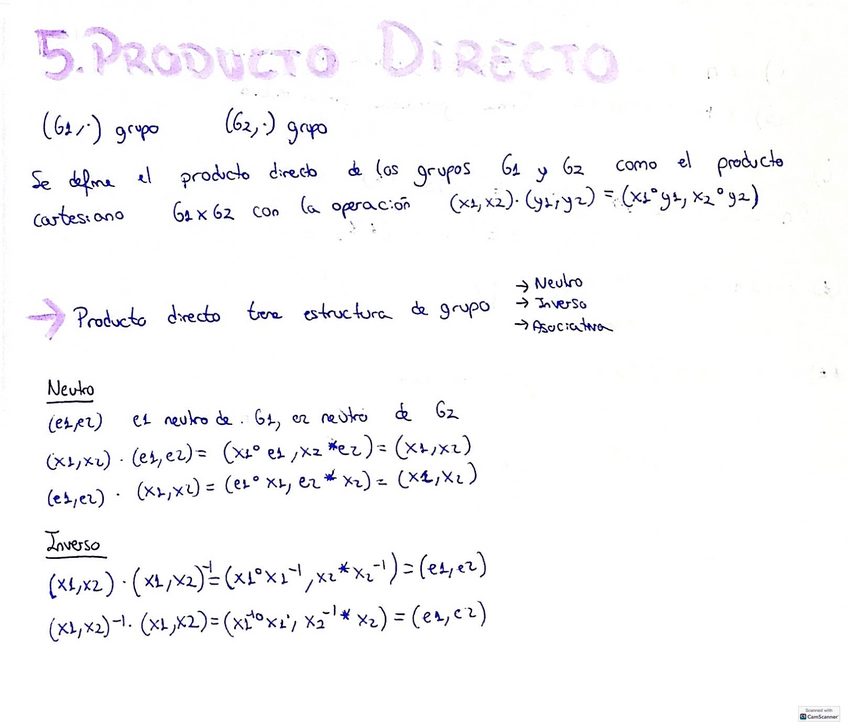 5. PRODUCTO DIRECTO
(G1,·) grupo (G2,·) grupo
Se define el producto directo de los grupos G1 y G2 como el producto
cartesiano G1xG2 con la operación (x1,x2)·(y1,y2) = (x1°y1, x2°y2)
→ Neutro
→ Producto directo tiene estructura de grupo → Inverso
→ Asociativa
Neutro
(e1,e2) e1 neutro de G1, e2 neutro de G2
(x1,x2) · (e1,e2) = (x1° e1, x2 *e2) = (x1,x2)
(e1,e2) · (x1,x2) = (e1° x1, e2 * x2) = (x1,x2)
Inverso
(x1,x2) · (x1,x2)⁻¹ = (x1°x1⁻¹, x2*x2⁻¹) = (e1,e2)
(x1,x2)⁻¹· (x1,x2) = (x1⁻¹°x1, x2⁻¹* x2) = (e1,e2)
Scanned with
CS CamScanner